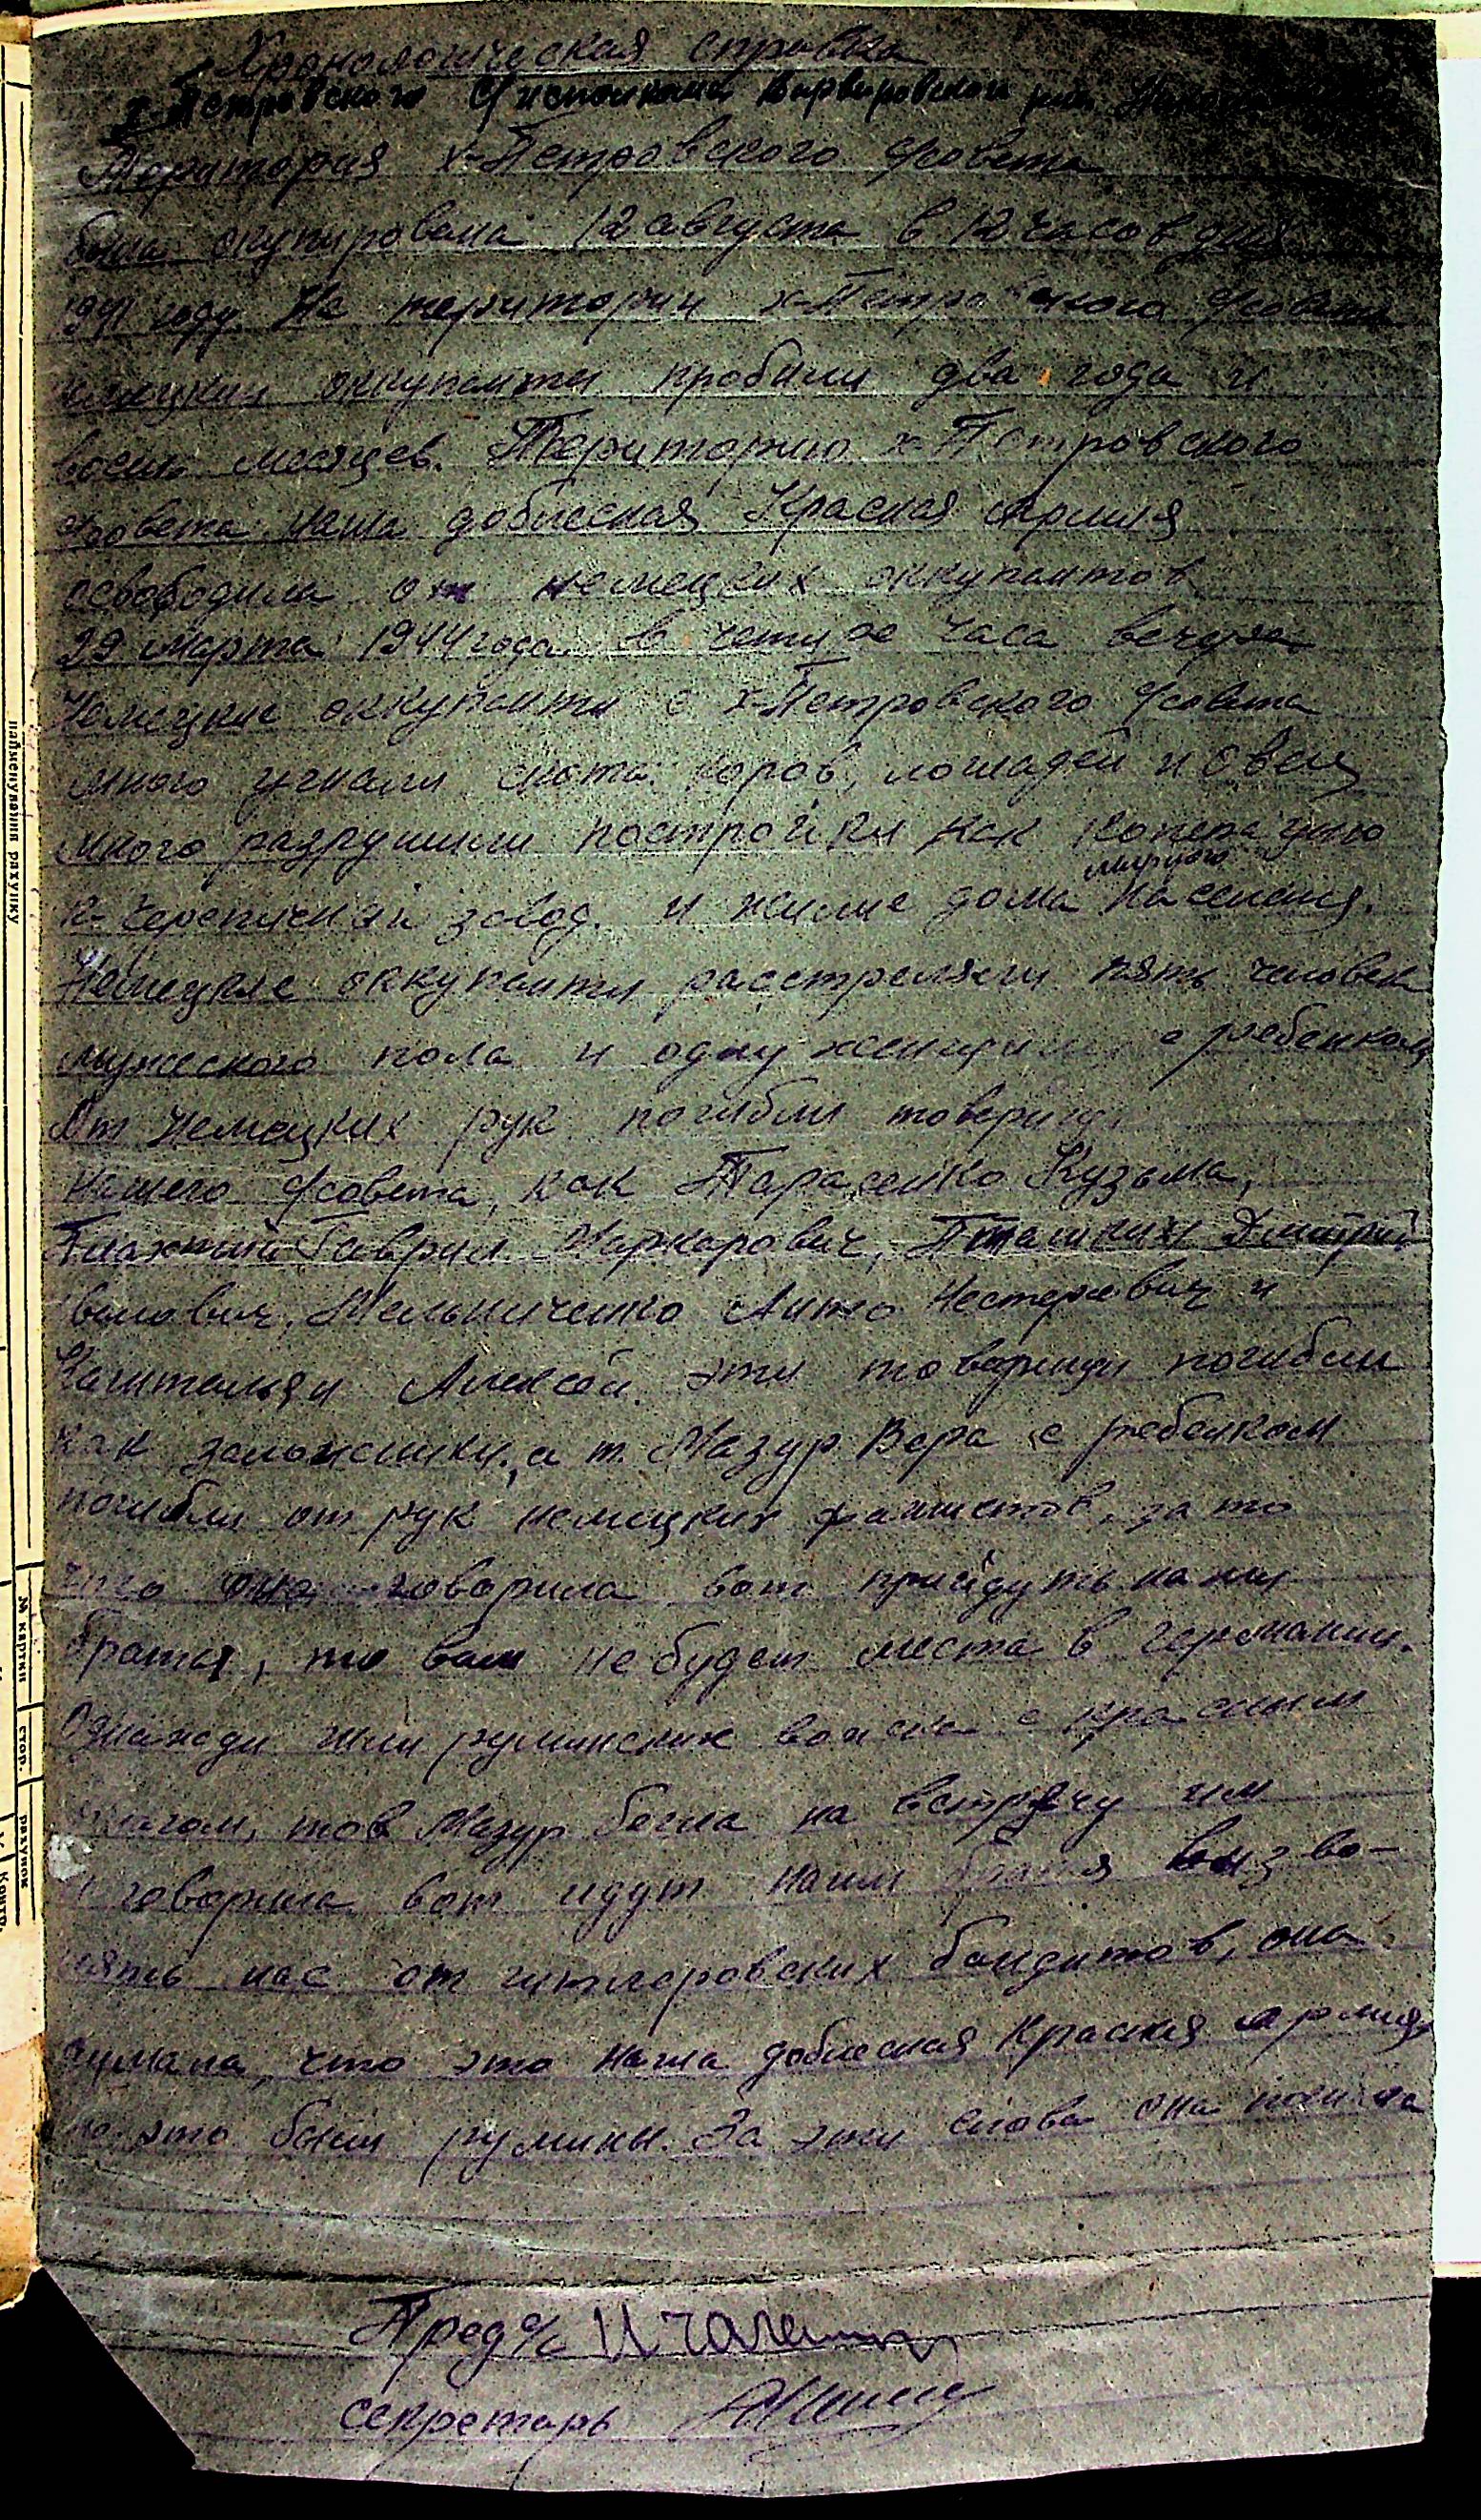 Хронологическая справка
х-Петровского с/исполкома Варваровского рай.
Територия х-Петровского с/совета
была окупирована 12 августа в 12 часов дня
1941 году. На територии х-Петровского с/совета
немецкии оккупанты пробили два года и
восемь месяцев. Територию х-Петровского
с/совета наша доблесная Красная армия
освободила от немецких оккупантов
29 марта 1944 года в четыре часа вечера
Немецкие оккупанты с х-Петровского с/совета
много угнали скота: коров, лошадей и овец
много разрушили постройки как
мирного
к-черепичний завод. и жилие дома населения.
Немецкие оккупанты расстреляли пять человек
мужеского пола и одну женщину с ребенком
От немецких рук погибли товерищи
нашего с/совета, как Тарасенко Кузьма,
Гаврил Макарович, Дмитрий
Мельниченко Антон Нестерович и
Алексей. эти товарищи погибли
как заложники, а т. Мазур Вера с ребенком
погибли от рук немецких фашистов, за то
чего она говорила вот прийдуть наши
братья, то вам не будет места в германии.
Однажди шли румынских войска с красним
флагом, тов Мазур бегла на встречу им
и говорила вот идут наши братья визво-
лять нас от гитлеровских бандитов, она
думала, что это наша доблесная Красная армия
но это были румыны. За эти слова она погибла
Пред с/с
секретарь
найменування рахунку
№ картки
стор.
рахунок